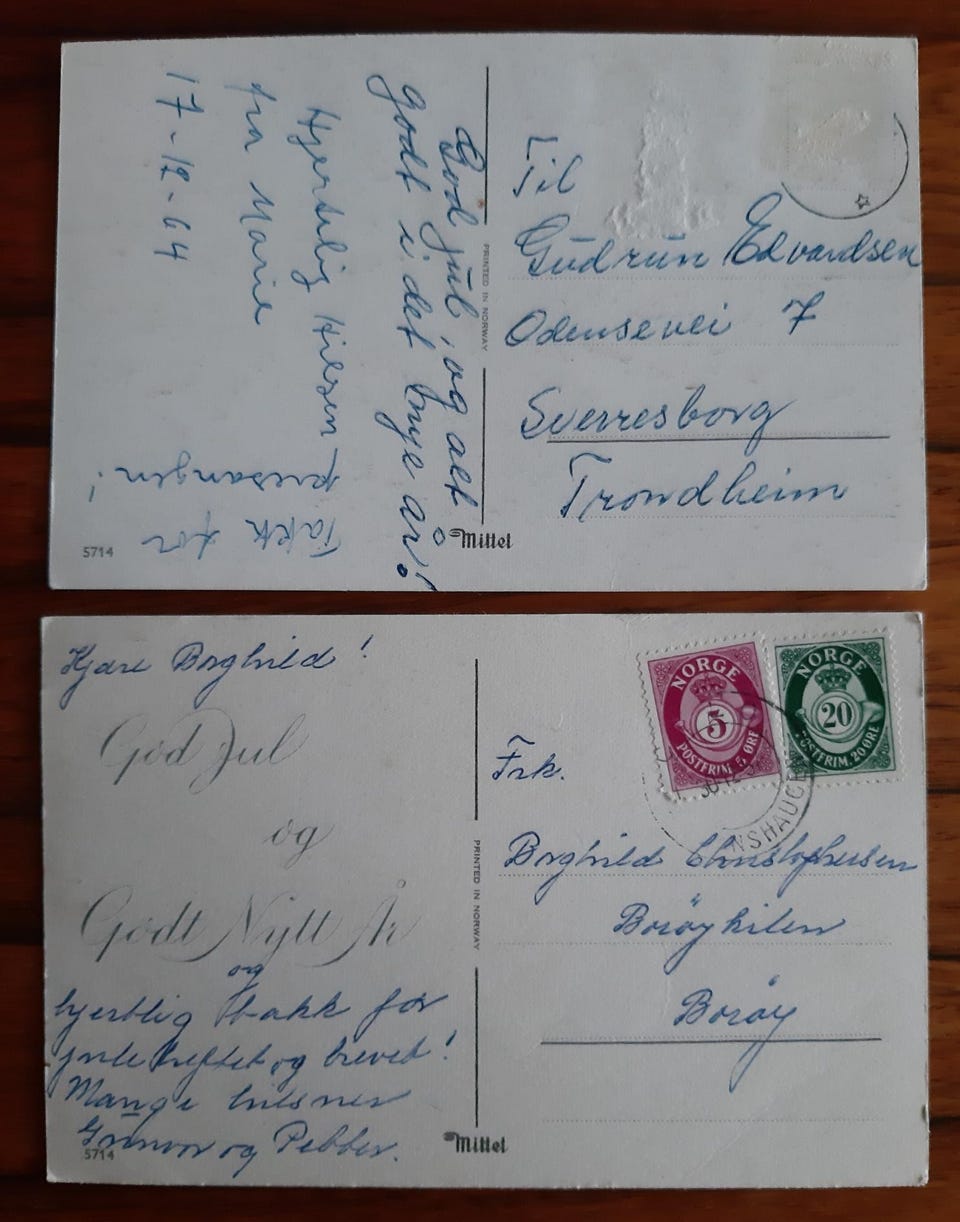 God jul, og alt
godt i det nye år!
Hjertelig Hilsen
fra Marie
17-12-64
Takk for
presangen!
PRINTED IN NORWAY
Til
Gudrun Edvardsen
Odensevei 7
Sverresborg
Trondheim
5714
Mittet
Kjære Borghild!
God Jul
og
Godt Nytt År
og
hjertelig takk for
juleheftet og brevet!
Mange hilsner
Gunvor og Pebber.
5714
PRINTED IN NORWAY
NORGE
5
POSTFRIM. 5 ØRE
NORGE
20
POSTFRIM. 20 ØRE
NSHAUGEN
Frk.
Borghild Christophersen
Borøykilen
Borøy
Mittet